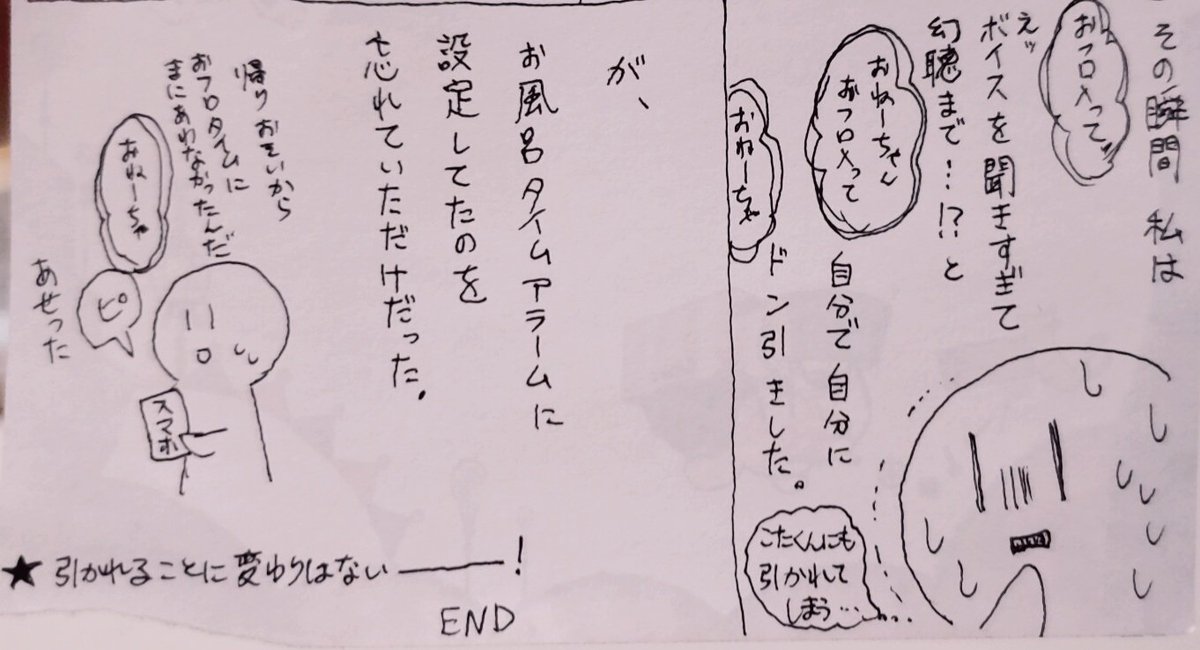 その瞬間 私は
おフロ入って
えッ
ボイスを聞きすぎて
幻聴まで…!?と
おねーちゃん
おフロ入って
自分で自分に
ドン引きした。
おねーちゃ
こたくんにも
引かれて
しまう…
が、
お風呂タイムアラームに
設定してたのを
忘れていただけだった。
帰りおそいから
おフロタイムに
まにあわなかったんだ
おねーちゃ
ピ
あせった
スマホ
★引かれることに変わりはない――!
END